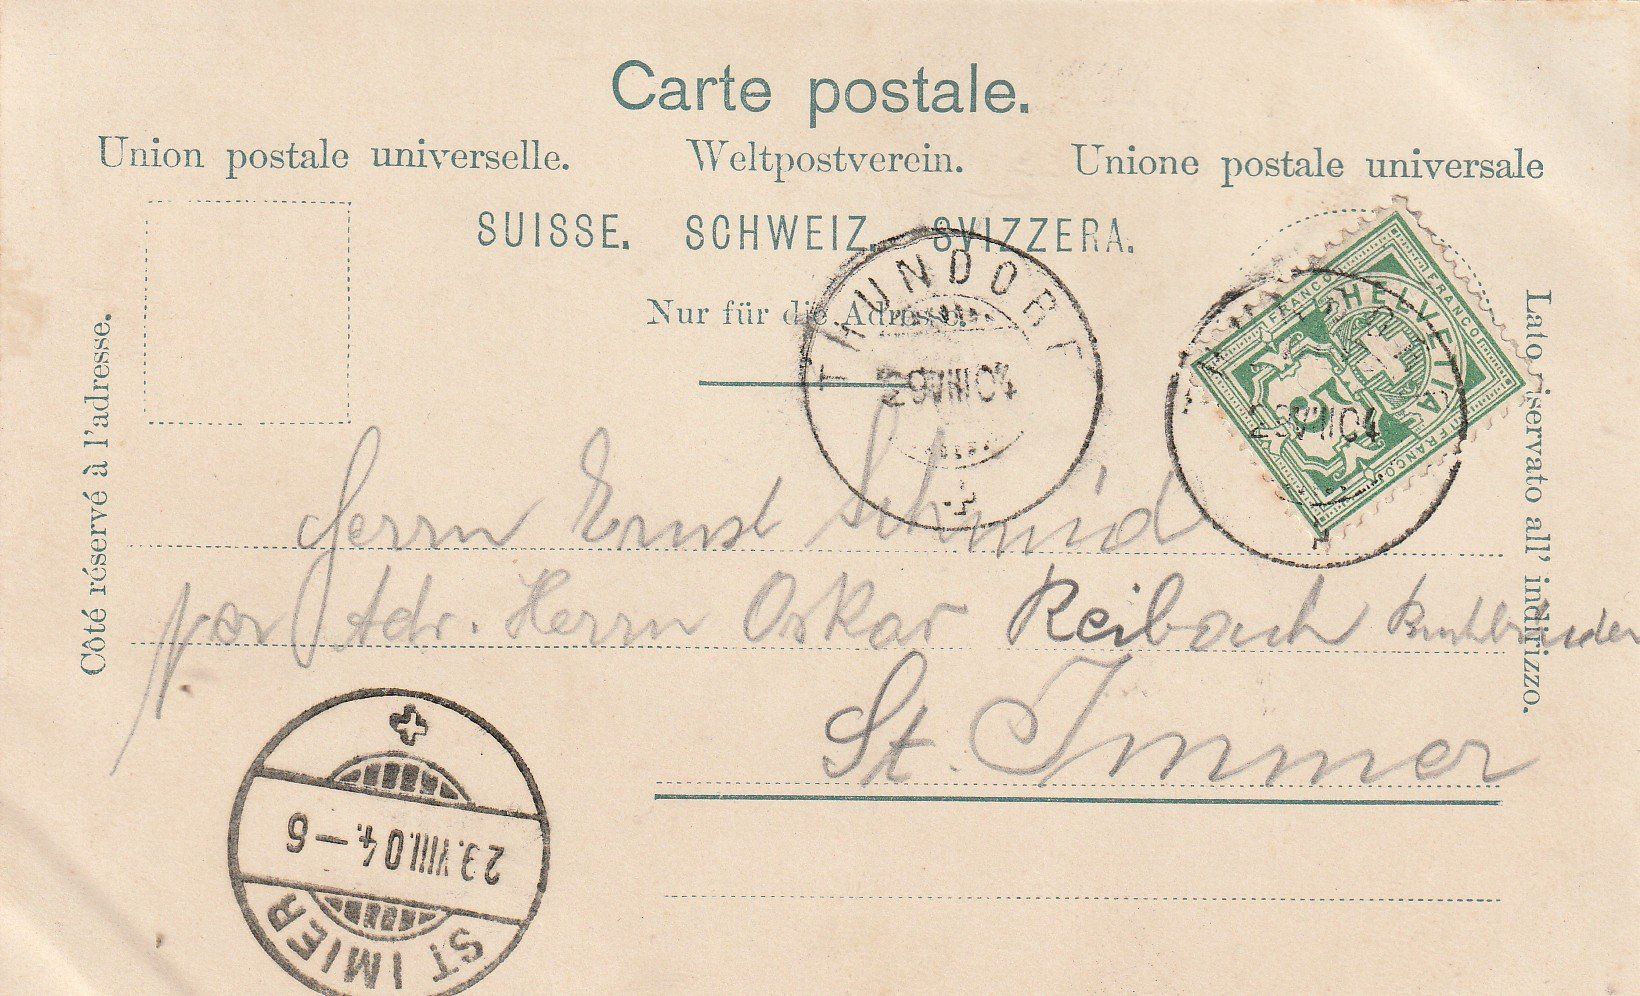 Carte postale.
Union postale universelle. Weltpostverein. Unione postale universale
SUISSE. SCHWEIZ. SVIZZERA.
Nur für die Adresse.
Côté réservé à l'adresse.
Lato riservato all' indirizzo.
THUNDORF
29 VIII 04
HELVETIA
FRANCO
FRANCO
FRANCO
5
VIII 04
Herrn Ernst Schmid
per Adr. Herrn Oskar Reibach Buchbinder
St. Immer
ST IMIER
29.VIII.04.-6